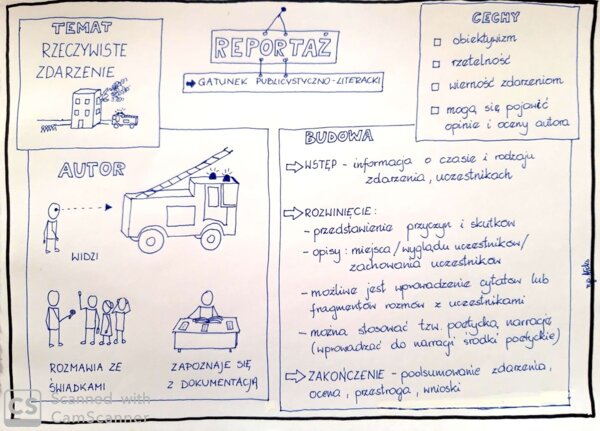 TEMAT
RZECZYWISTE
ZDARZENIE
REPORTAŻ
➡ GATUNEK PUBLICYSTYCZNO-LITERACKI
CECHY
□ obiektywizm
□ rzetelność
□ wierność zdarzeniom
□ mogą się pojawić
opinie i oceny autora
AUTOR
WIDZI
ROZMAWIA ZE
ŚWIADKAMI
ZAPOZNAJE SIĘ
Z DOKUMENTACJĄ
BUDOWA
⇨ WSTĘP - informacja o czasie i rodzaju
zdarzenia, uczestnikach
⇨ ROZWINIĘCIE:
- przedstawienie przyczyn i skutków
- opisy: miejsca/wyglądu uczestników/
zachowania uczestników
- możliwe jest wprowadzenie cytatów lub
fragmentów rozmów z uczestnikami
- można stosować tzw. poetycką narrację
(wprowadzać do narracji środki poetyckie)
⇨ ZAKOŃCZENIE - podsumowanie zdarzenia,
ocena, przestroga, wnioski
CS Scanned with
CamScanner